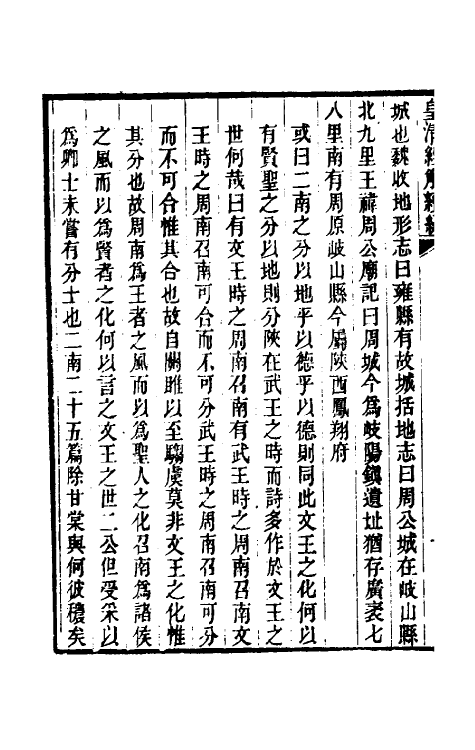 皇清經解續編
城也魏收地形志曰雍縣有故城括地志曰周公城在岐山縣
北九里王禕周公廟記曰周城今爲岐陽鎮遺址猶存廣袤七
八里南有周原岐山縣今屬陝西鳳翔府
或曰二南之分以地乎以德乎以德則同此文王之化何以
有賢聖之分以地則分陝在武王之時而詩多作於文王之
世何哉曰有文王時之周南召南有武王時之周南召南文
王時之周南召南可合而不可分武王時之周南召南可分
而不可合惟其合也故自關雎以至騶虞莫非文王之化惟
其分也故周南爲王者之風而以爲聖人之化召南爲諸侯
之風而以爲賢者之化何以言之文王之世二公但受采以
爲卿士未嘗有分土也二南二十五篇除甘棠與何彼穠矣